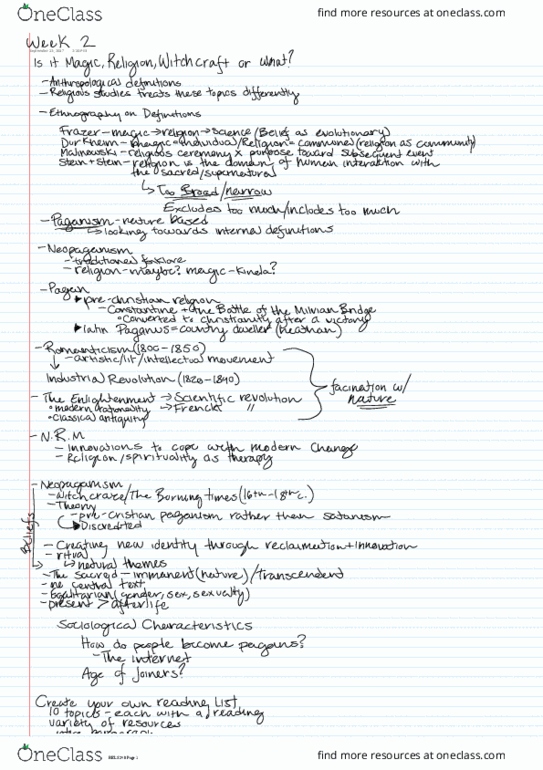 OneClass
find more resources at oneclass.com
Week 2
Is it Magic, Religion, Witchcraft or what?
- Anthropological definitions
- Religious studies treats these topics differently
- Ethnography on Definitions
Frazer - magic → religion → science (Belief as evolutionary)
Durkheim - magic = individual/Religion = communal (religion as community)
Malinowski - religious ceremony x purpose toward subsequent event
Stein + Stein - religion is the domain of human interaction with
the sacred/supernatural
↳ Too Broad/narrow
Excludes too much/includes too much
- Paganism - nature based
↳ looking towards internal definitions
- Neopaganism
- traditional folklore
- religion - maybe? magic - kinda?
- Pagan
▸ pre-christian religion
- Constantine + the Battle of the Milvian Bridge
• Converted to christianity after a victory
▸ latin Paganus = country dweller (heathan)
- Romanticism (1800-1850)
↳ - artistic/lit/intellectual movement
Industrial Revolution (1820-1840)
facination w/
nature
- The Enlightenment → Scientific revolution
• modern rationality → French "
• Classical antiquity
- N.R.M
- Innovations to cope with modern change
- Religion/spirituality as therapy
- Neopaganism
- Witchcraze/The Burning times (16th-18th c.)
- Theory
- pre-cristian paganism rather than satanism
↳ Discredited
Beliefs
- Creating new identity through reclaimation + innovation
- ritual
↳ natural themes
- The sacred - immanent (nature)/transcendent
- no central text
- Egalitarian (gender, sex, sexualty)
- present > afterlife
Sociological Characteristics
How do people become pagans?
- The internet
Age of Joiners?
Create your own reading list
10 topics - each with a reading
variety of resources
OneClass
find more resources at oneclass.com